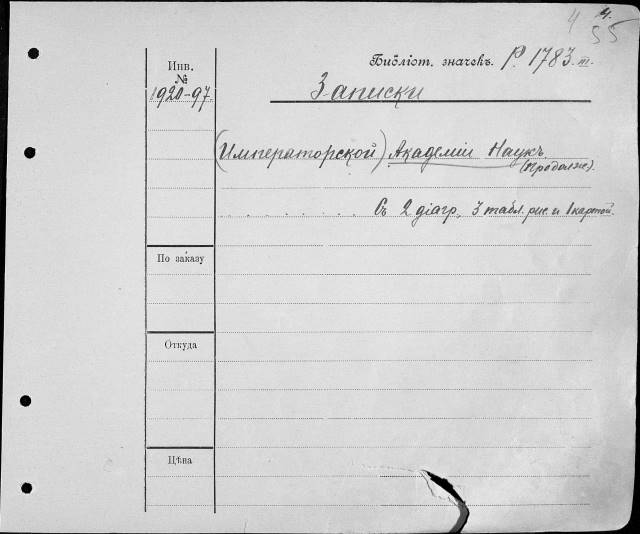 4 4.
55
Инв.
№
1920-97.
Библіот. значекъ. Р. 1783. III.
Записки
(Императорской) Академіи Наукъ
(Продолж).
Съ 2 діагр., 3 табл. рис. и 1 картой.
По заказу
Откуда
Цѣна